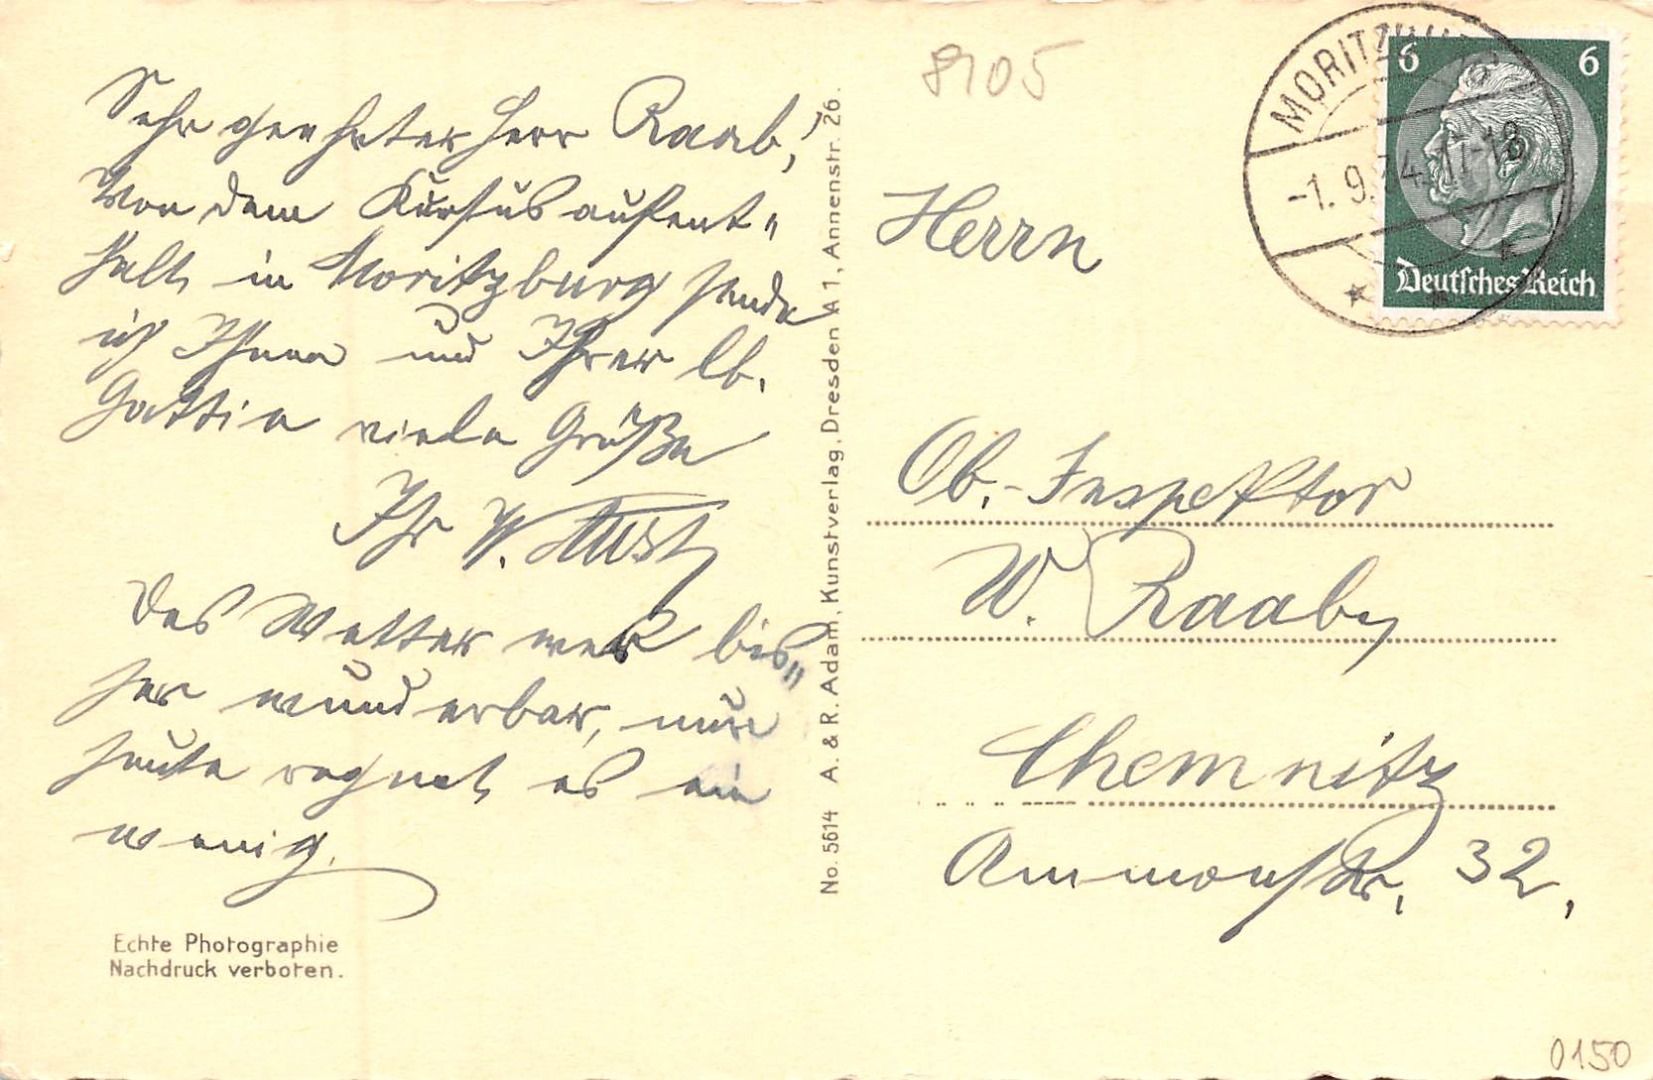 8105
MORITZBURG
-1.9.34.17-18
6 6
Deutsches Reich
Sehr geehrter Herr Raab!
Von dem Kursusaufent-
halt in Moritzburg sende
ich Ihnen und Ihrer lb.
Gattin viele Grüße
Ihr W.
Das Wetter war bis-
her wunderbar, nur
heute regnet es ein
wenig.
Echte Photographie
Nachdruck verboten.
No. 5614 A. & R. Adam, Kunstverlag, Dresden A 1, Annenstr. 26.
Herrn
Ob.-Inspektor
W. Raab,
Chemnitz
Ammonstr. 32,
0150